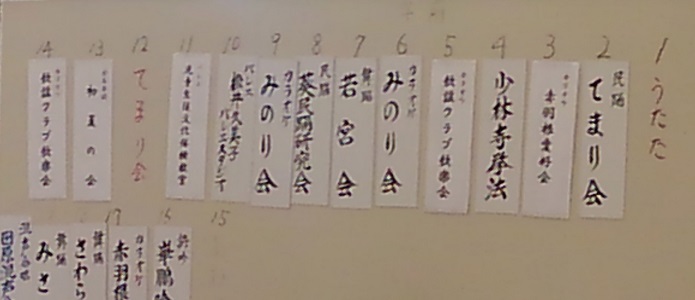 1 うたた
2 民踊 てまり会
3 カラオケ 赤羽根愛好会
4 少林寺拳法
5 カラオケ 歌謡クラブ歓楽会
6 カラオケ みのり会
7 舞踊 若宮会
8 民踊 葵民踊研究会
9 カラオケ みのり会
10 バレエ 松井久美子バレエスタジオ
11 児童生徒文化体験教室
12 てまり会
13 初夏の会
14 カラオケ 歌謡クラブ歓楽会
15
16 詩吟 華鵬
17 カラオケ 赤羽根
舞踊 さわら
舞踊 みさ
混声合唱 田原混声